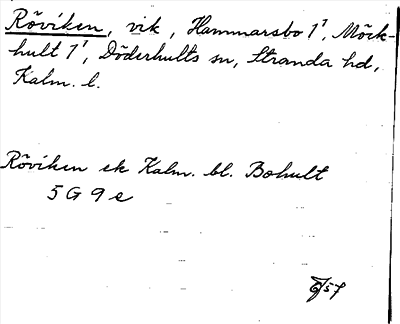 Röviken, vik, Hammarsbo 1¹, Möck-
hult 1¹, Döderhults sn, Stranda hd,
Kalm. l.
Röviken ek Kalm. bl. Bohult
5 G 9 e